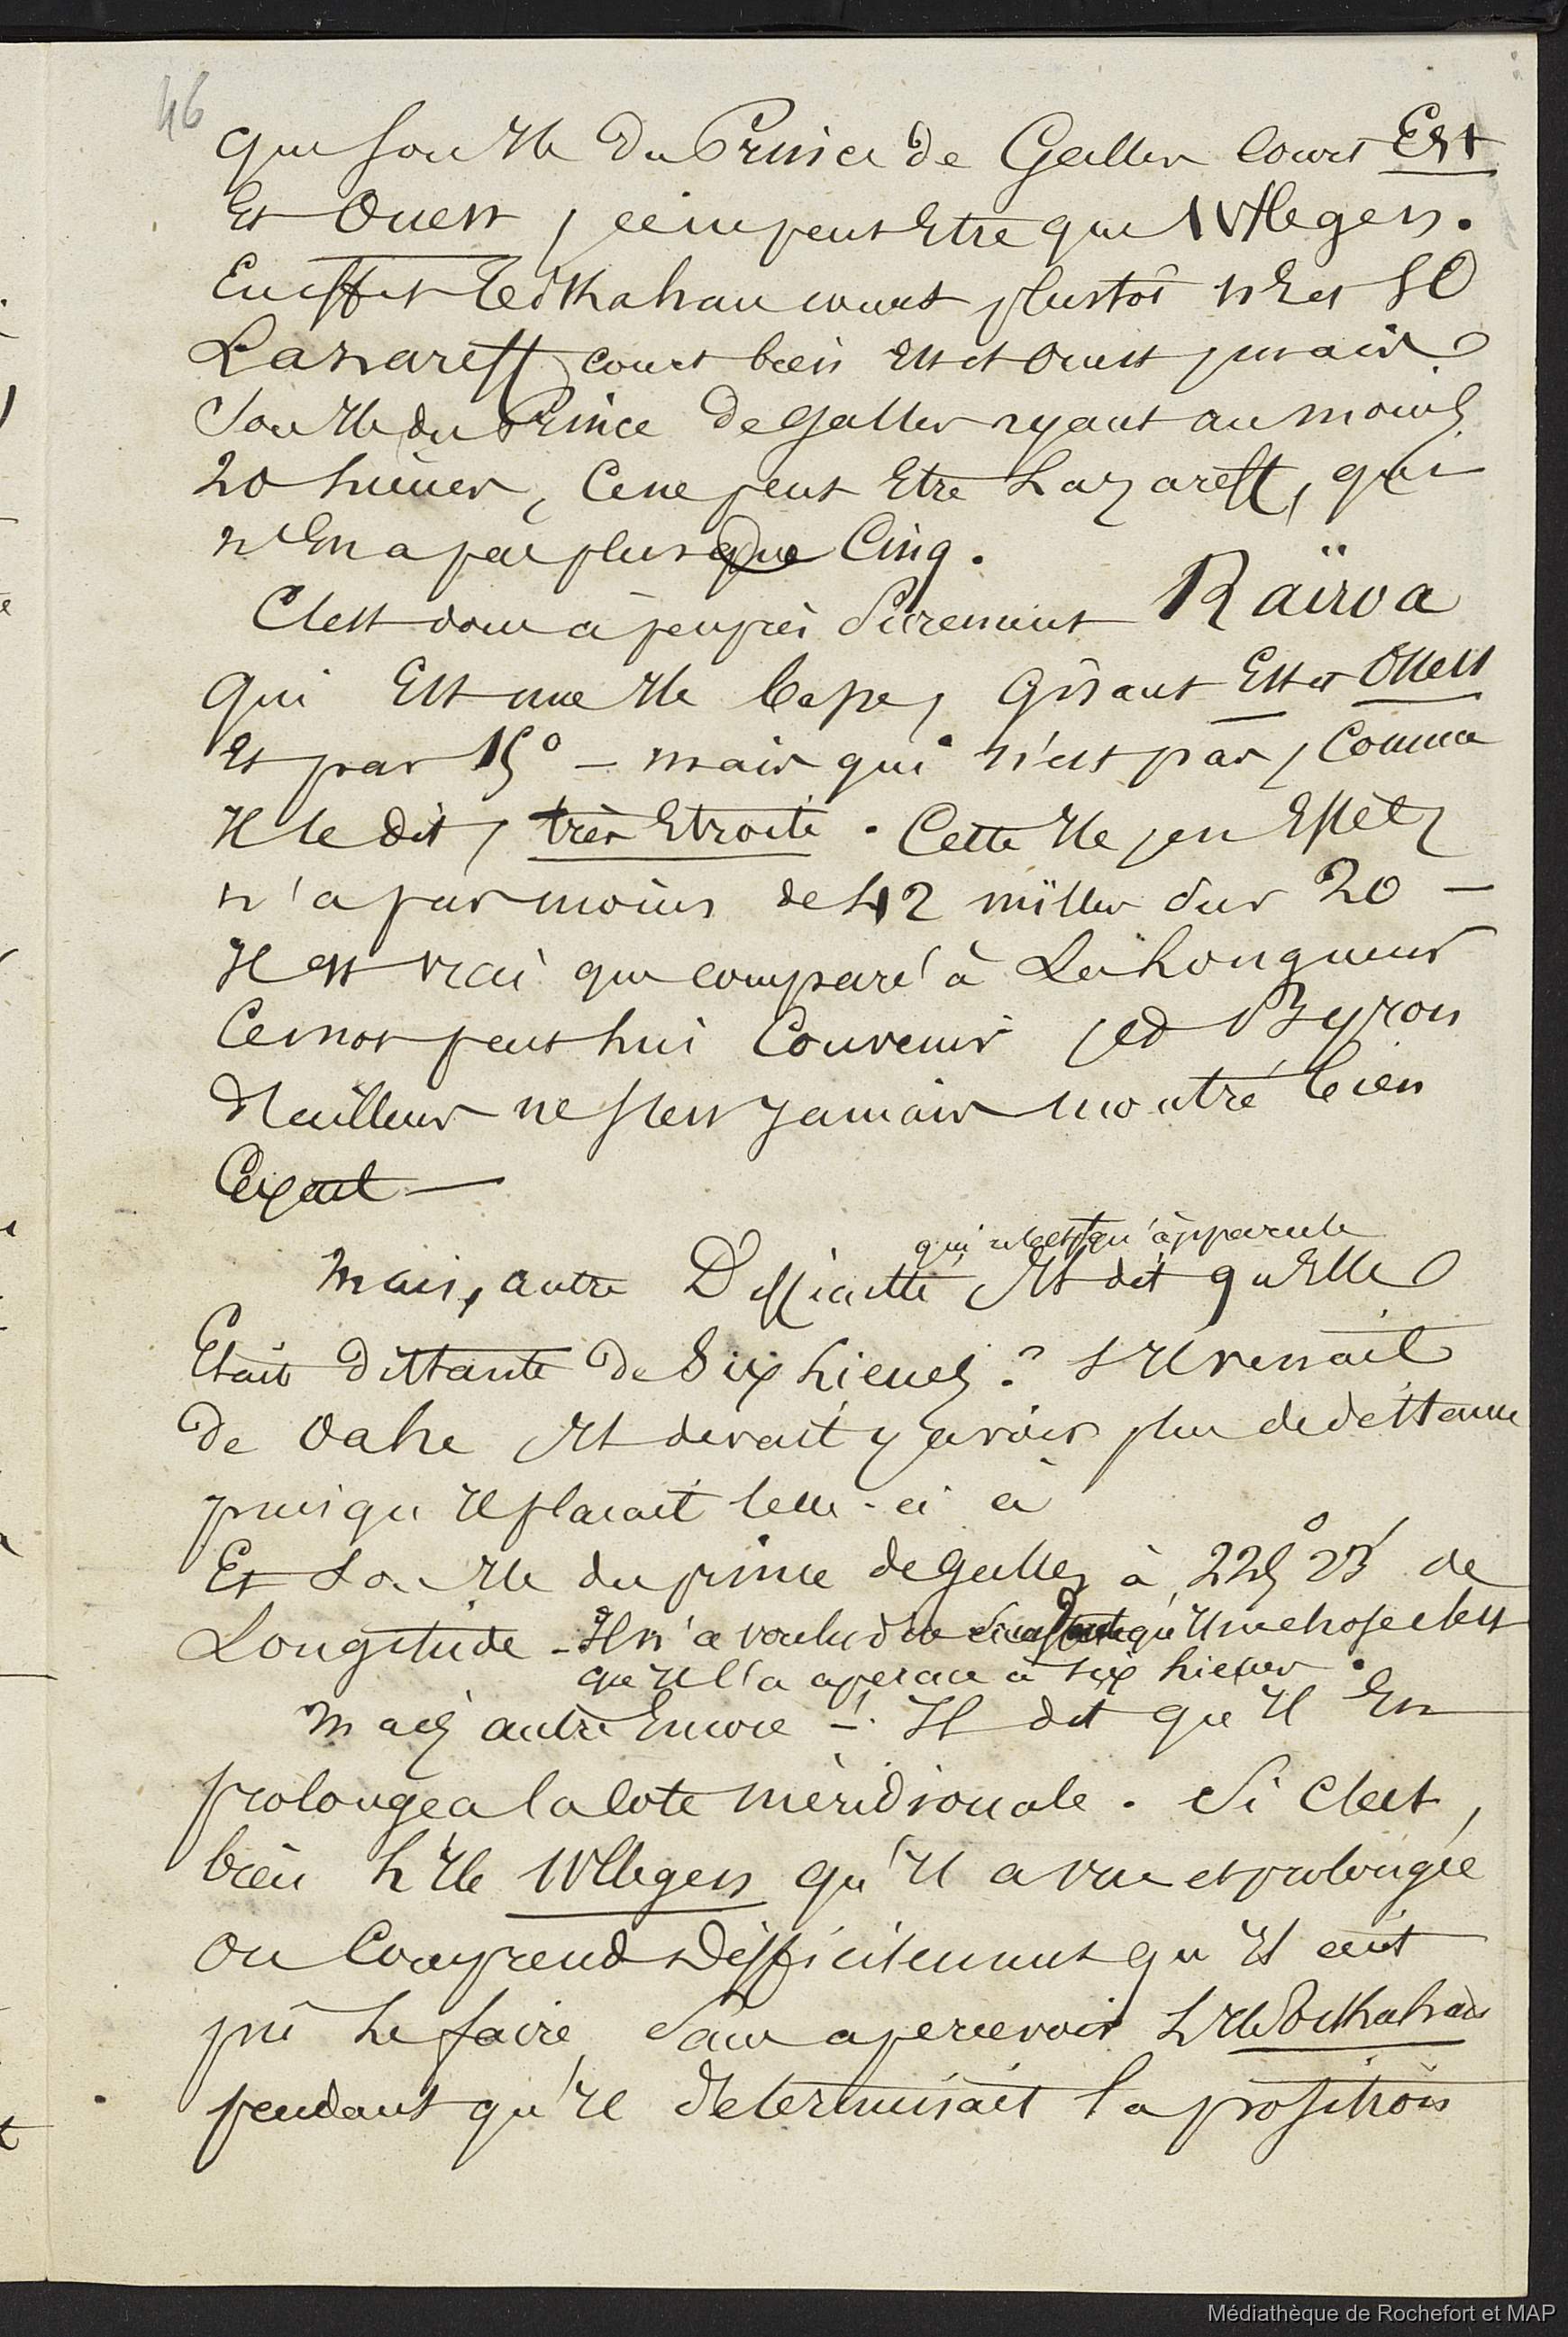 46
que son Ile du Prince de Galles Court Est
Et Ouest, ce ne peut Etre que Wllegen.
En effet Teikahau court plustot NE et SO
Lazareff court bien Est et Ouest, mais
Son Ile du Prince de Galles ayant au moins
20 lieues, Ce ne peut Etre Lazareff, qui
n'En a pas plus que Cinq.
C'est donc à peu près Surement Raïroa
qui Est une Ile basse, Gisant Est et Ouest
Et par 15° - mais qui n'est pas, Comme
Il le dit, très Etroite. Cette Ile, en Effet,
n'a pas moins de 42 milles sur 20 -
Il est vrai que comparé à La Longueur
Ce mot peut lui Convenir, et Byron
d'ailleurs ne s'est jamais montré bien
Exact -
qui n'est qu'apparente
Mais, autre Difficulté, Il dit qu'Elle
Etait distante de Six Lieues? S'Il venait
de Oahe Il devait y avoir plus de distance
puisqu'Il plaçait celle-ci à
Et Son Ile du prince de Galles à 225° 23' de
Longitude - Il n'a voulu dire sans doute qu'Une chose c'est
qu'Il l'a aperçue à six lieues.
Mais autre Encore -! Il dit qu'Il En
prolongea la Cote méridionale. Si C'est,
bien L'Ile Wllegen qu'Il a vue et prolongée
on Comprend Difficilement qu'Il ait
pu Le faire, Sans apercevoir L'Ile Teikahau
pendant qu'Il determinait la position
Médiathèque de Rochefort et MAP